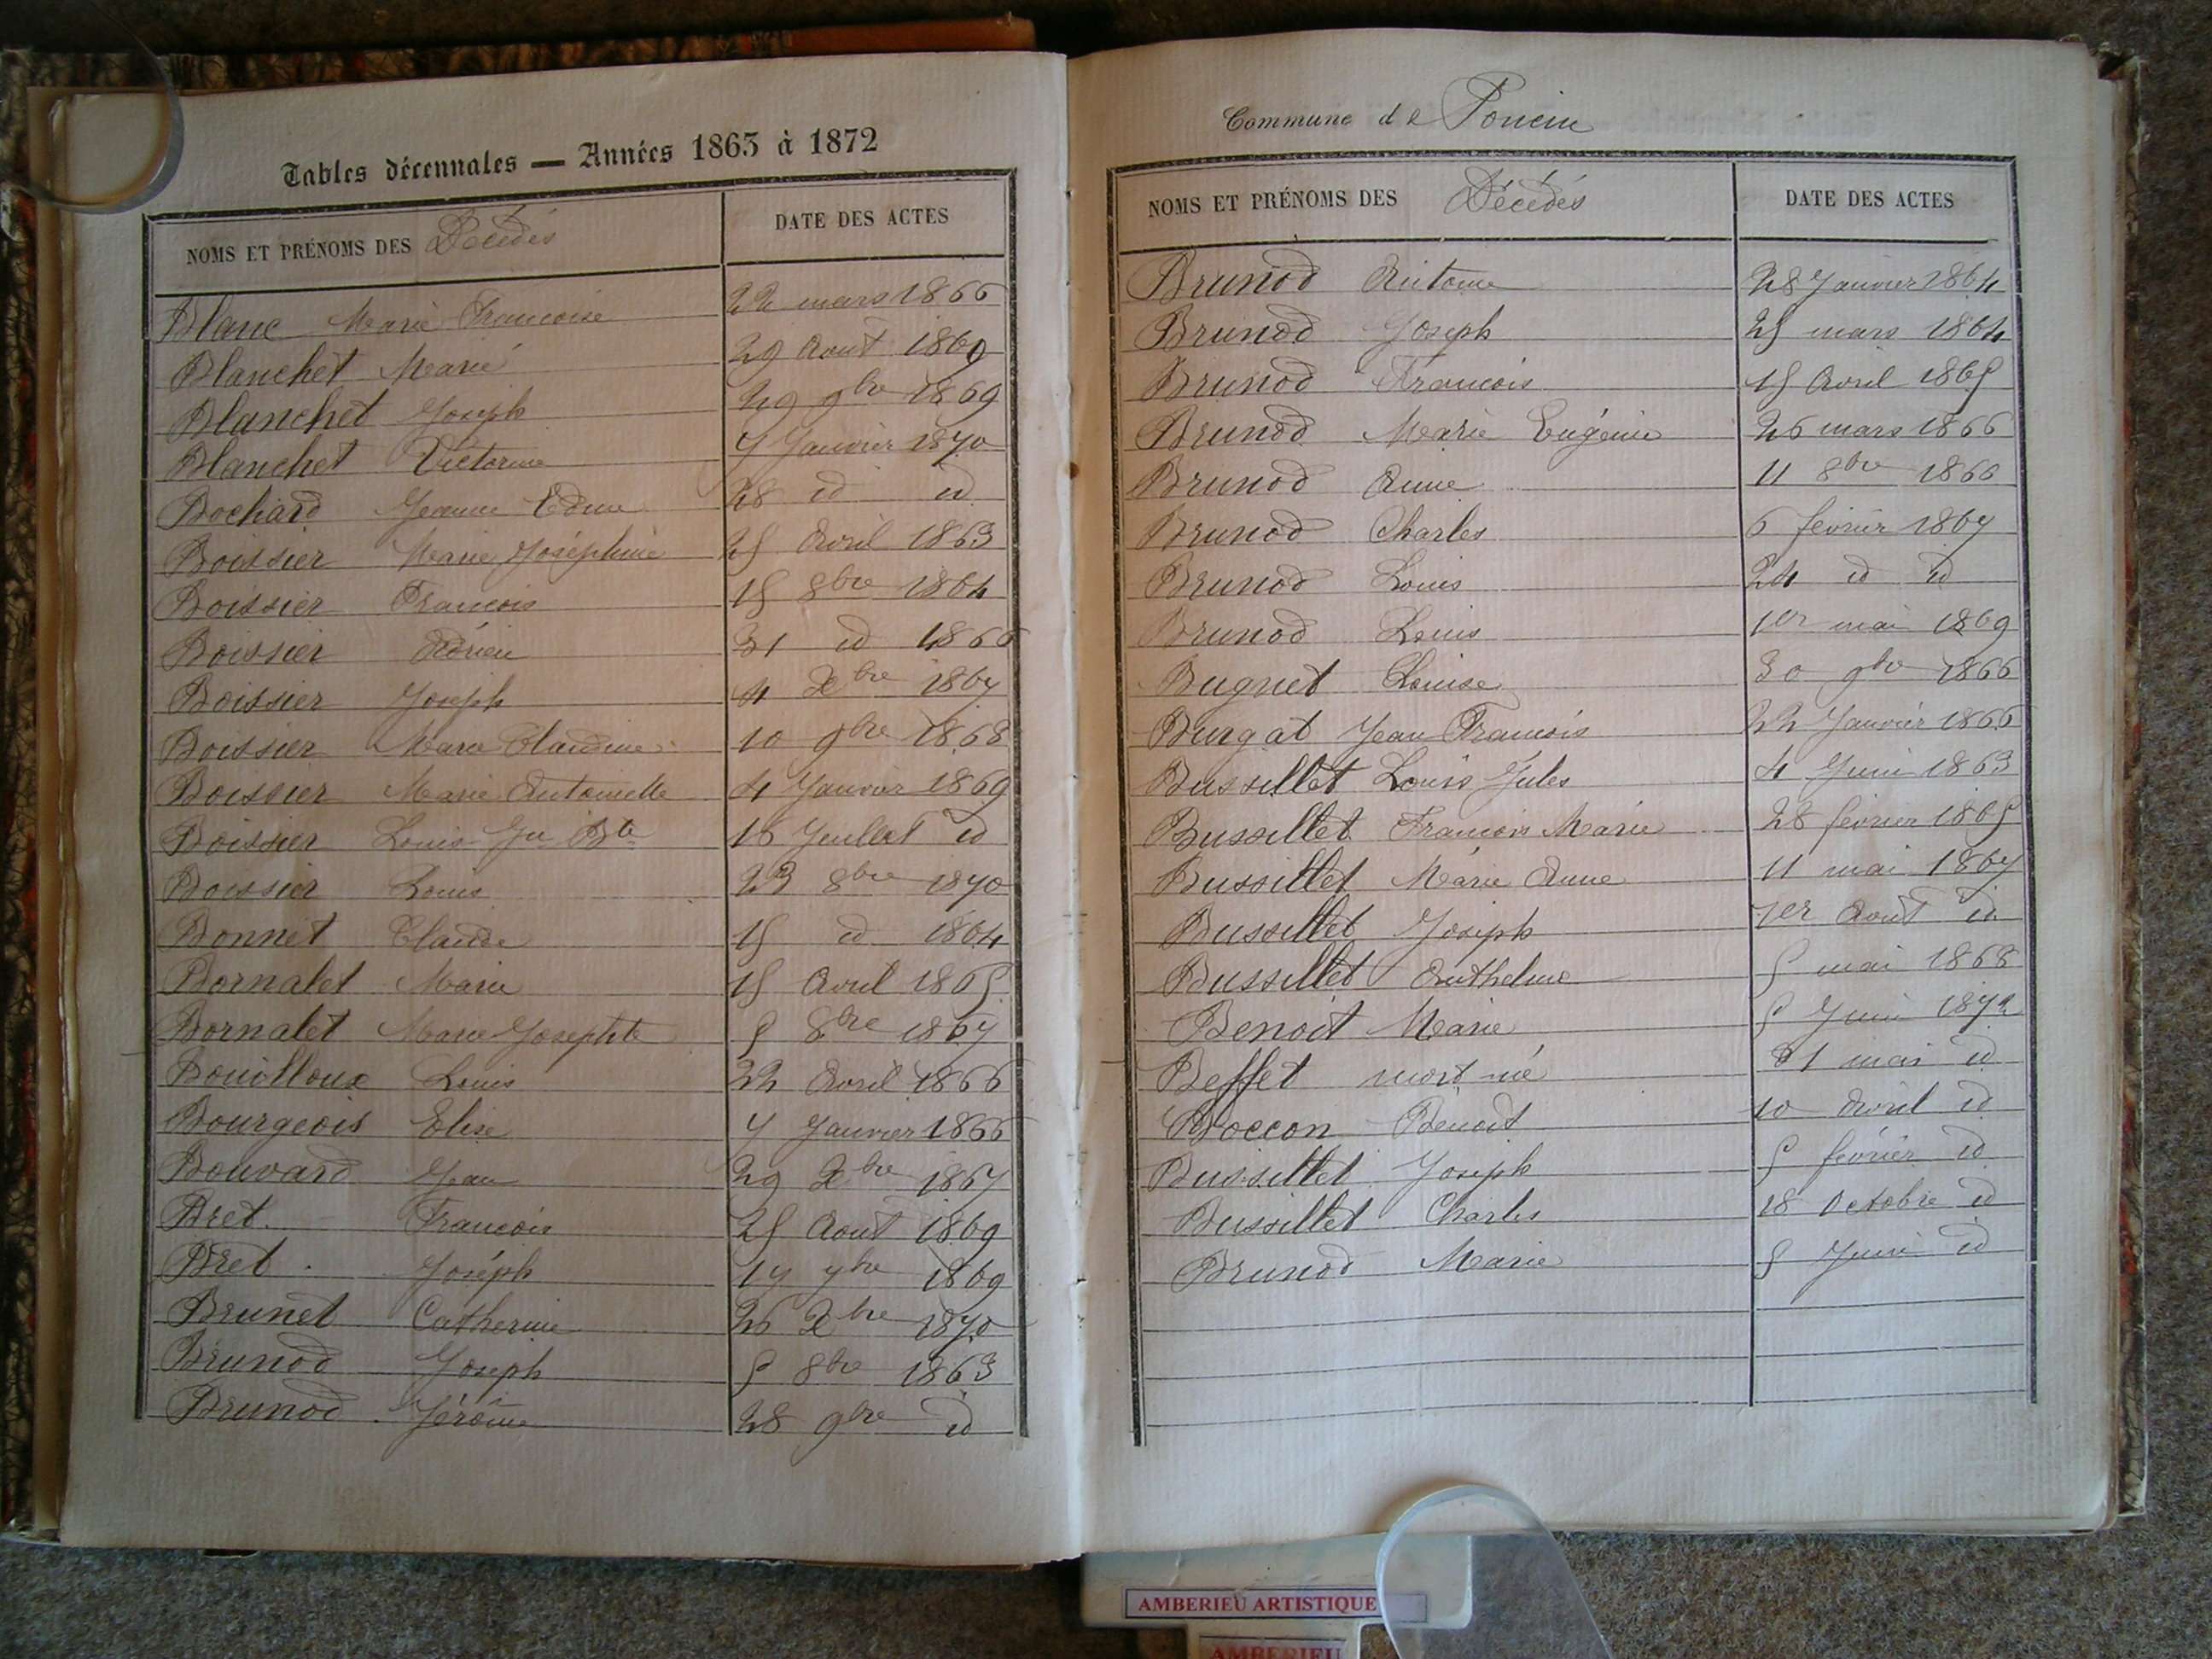 Tables décennales — Années 1863 à 1872
NOMS ET PRÉNOMS DES Décédés DATE DES ACTES
Blanc Marie Francoise 22 mars 1866
Blanchet Marie 29 Aout 1869
Blanchet Joseph 29 9bre 1869
Blanchet Victorine 7 Janvier 1870
Bochard Jeanne Edme 28 id id
Boissier Marie Joséphine 25 Avril 1863
Boissier Francois 15 8bre 1864
Boissier Adrien 31 id 1866
Boissier Joseph 4 Xbre 1867
Boissier Marie Claudine 10 9bre 1868
Boissier Marie Antoinette 4 Janvier 1869
Boissier Louis Jn Bte 16 Juillet id
Boissier Louis 23 8bre 1870
Bonnet Claude 15 id 1864
Bornalet Marie 15 Avril 1865
Bornalet Marie Josephte 5 8bre 1867
Bouilloux Louis 22 Avril 1866
Bourgeois Elise 7 Janvier 1866
Bouvard Jean 29 Xbre 1867
Bret Francois 25 Aout 1869
Bret Joséph 17 7bre 1869
Brunet Catherine 26 Xbre 1870
Brunod Joseph 5 8bre 1863
Brunod Jérôme 28 9bre id
Commune de Poncin
NOMS ET PRÉNOMS DES Décédés DATE DES ACTES
Brunod Antoine 28 Janvier 1864
Brunod Joseph 25 mars 1864
Brunod Francois 15 Avril 1865
Brunod Marie Eugénie 26 mars 1866
Brunod Anne 11 8bre 1866
Brunod Charles 6 février 1867
Brunod Louis 24 id id
Brunod Louis 1er mai 1869
Buguet Louise 30 9bre 1866
Burgat Jean Francois 22 Janvier 1866
Bussillet Louis Jules 4 Juin 1863
Bussillet Francois Marie 28 février 1865
Bussillet Marie Anne 11 mai 1867
Bussillet Joseph 1er Aout id
Bussillet Anthelme 5 mai 1868
Benoit Marie 5 Juin 1872
Beffet mort-né 31 mai id
Boccon Benoit 10 Avril id
Bussillet Joseph 5 février id
Bussillet Charles 18 Octobre id
Brunod Marie 5 Juin id
AMBERIEU ARTISTIQUE
AMBERIEU